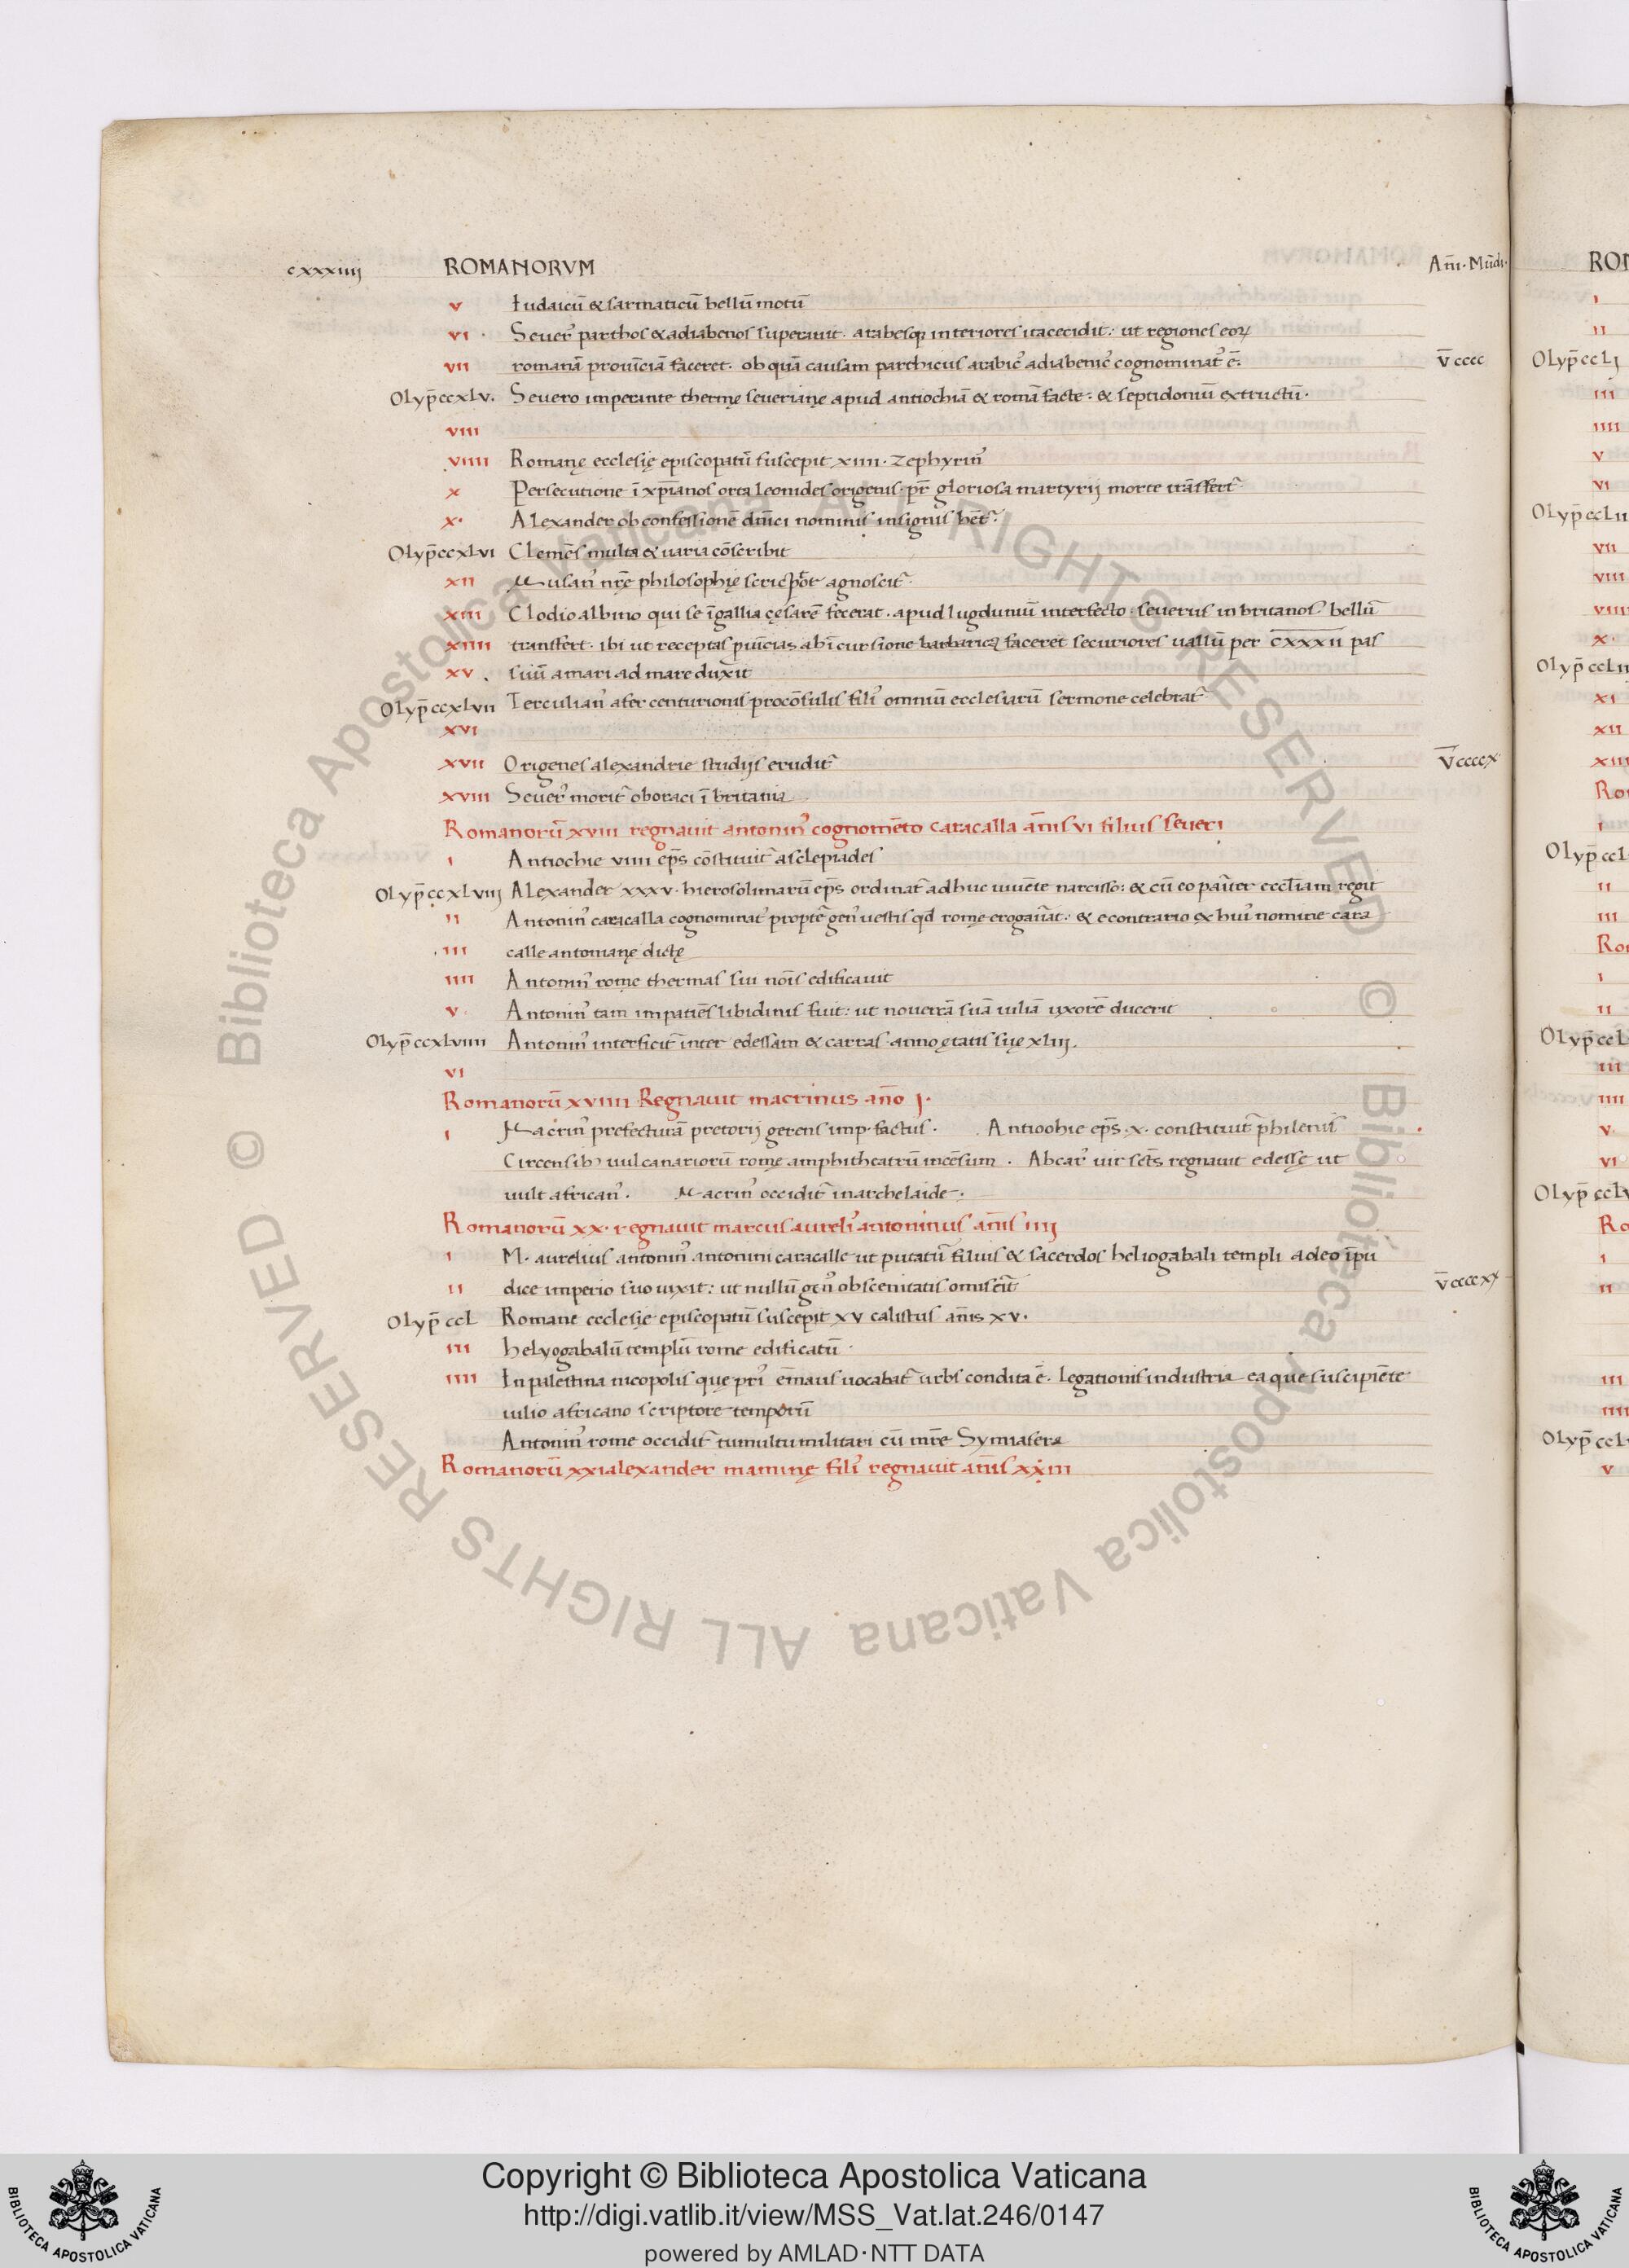 cxxxiiij ROMANORVM Añi. Mũdi.
v Iudaicũ & sarmaticũ bellũ motũ
vi Seuer᾽ parthos & adiabenos superauit. arabesq; interiores ita cecidit: ut regiones eoꝝ
vii romanã prouĩciã faceret. ob quã causam parthicus arabic᾽ adiabenic᾽ cognominat᾽ ẽ. v̄cccc
Olyp̄ccxlv. Seuero imperante thermę seueriane apud antiochiã & romã facte: & septidoniũ extructũ.
viii
viiii Romanę ecclesię episcopatũ suscepit xiiii. zephyrin᾽
x Persecutione ĩ xp̄ianos orta leonides origenis p̄r gloriosa martyrij morte trãsfert᷑
x. Alexander ob confessionẽ dñici nominis insignis het᷑.
Olyp̄ccxlvi Clemẽs multa & uaria cõscribit
xii Musan᾽ nr̄e philosophię scriptor agnoscit᷑.
xiii Clodio albino qui se ĩ gallia cęsarẽ fecerat. apud lugdunũ interfecto. seuerus in britanos bellũ
xiiii transfert. ibi ut receptas puĩcias ab ĩcursione barbarica faceret securiores uallũ per cxxxii pas
xv. siuũ a mari ad mare duxit
Olyp̄ccxlvii Terculian᾽ afer centurionis procõsulis fili᾽ omniũ ecclesiarũ sermone celebrat᷑
xvi
xvii Origenes alexandrie studijs erudit᷑ v̄ccccx
xviii Seuer᾽ morit᷑ oboraci ĩ britania
Romanorũ xviii regnauit antonin᾽ cognomẽto caracalla añis vi filius seueri
i Antiochie viiii ep̄s cõstituit᷑ asclepiades
Olyp̄ccxlviij Alexander xxxv. hierosolimarũ ep̄s ordinat᷑ adhuc uiuẽte narcisso: & cũ eo parit᷑er eccl̄iam regit
ii Antonin᾽ caracalla cognominat᾽ propt᷑ gen᾽ uestis qd rome erogauat. & econtrario ex hui᾽ nomine cara
iii calle antomanę dictę
iiii Antonin᾽ rome thermas sui nois edificauit
v. Antonin᾽ tam impatiẽs libidinis fuit: ut nouercã suã iuliã uxorẽ ducerit
Olyp̄ccxlviiii Antonin᾽ interficit᷑ inter edessam & carras anno ętatis sue xliij.
vi
Romanorũ xviiii Regnauit macrinus año j.
i Macrin᾽ prefecturã pretorij gerens imp. factus. Antioohie ep̄s. x. constituit᷑ philenis
Circensib; uulcanariorũ romę amphitheatrũ incẽsum. Abcar᾽ uir sc̄s regnauit edessę ut
uult african᾽. Macrin᾽ occidit᷑ in archelaide.
Romanorũ xx. regnauit marcus aureli᾽ antoninus añis iiij
i M. aurelius antonin᾽ antonini caracalle ut putatũ filius & sacerdos heliogabali templi adeo ĩpu
ii dice imperio suo uixit: ut nullũ gen᾽ obscenitatis omiserit v̄ccccxx
Olyp̄ ccl Romane ecclesię episcopatũ suscepit xv calistus añis xv.
iii helyogabalũ templũ rome edificatũ.
iiii In palestina nicopolis quę pri᾽ emaus uocabat᷑ urbs condita ẽ. legationis industria ea que suscipiẽte
iulio africano scriptore temporũ
Antonin᾽ rome occidit᷑ tumultu militari cũ mr̄e Symiasera
Romanorũ xxi alexander mamine fili᾽ regnauit añis xxiii
ROM
i
ii
Olyp̄ccLj
iii
iiii
v
vi
Olyp̄ccLii
vii
viii
viiii
x.
xi
xii
xiii
i
ii
iii
i
ii
iii
iiii
v
vi
i
ii
iii
iiii
v
© Biblioteca Apostolica Vaticana ALL RIGHTS RESERVED © Biblioteca Apostolica Vaticana ALL RIGHTS RESERVED
Copyright © Biblioteca Apostolica Vaticana
http://digi.vatlib.it/view/MSS_Vat.lat.246/0147
powered by AMLAD·NTT DATA
BIBLIOTECA APOSTOLICA VATICANA
BIBLIOTECA APOSTOLICA VATICANA